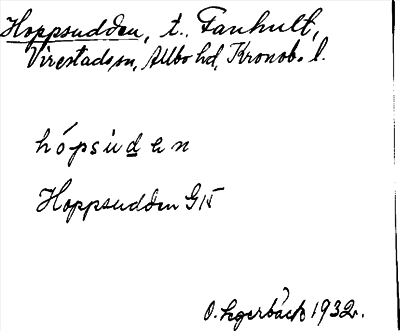 Hoppsudden, t. Fanhult,
Virestads sn, Allbo hd, Kronob. l.
hópsùden
Hoppsudden G15
O. 1932.